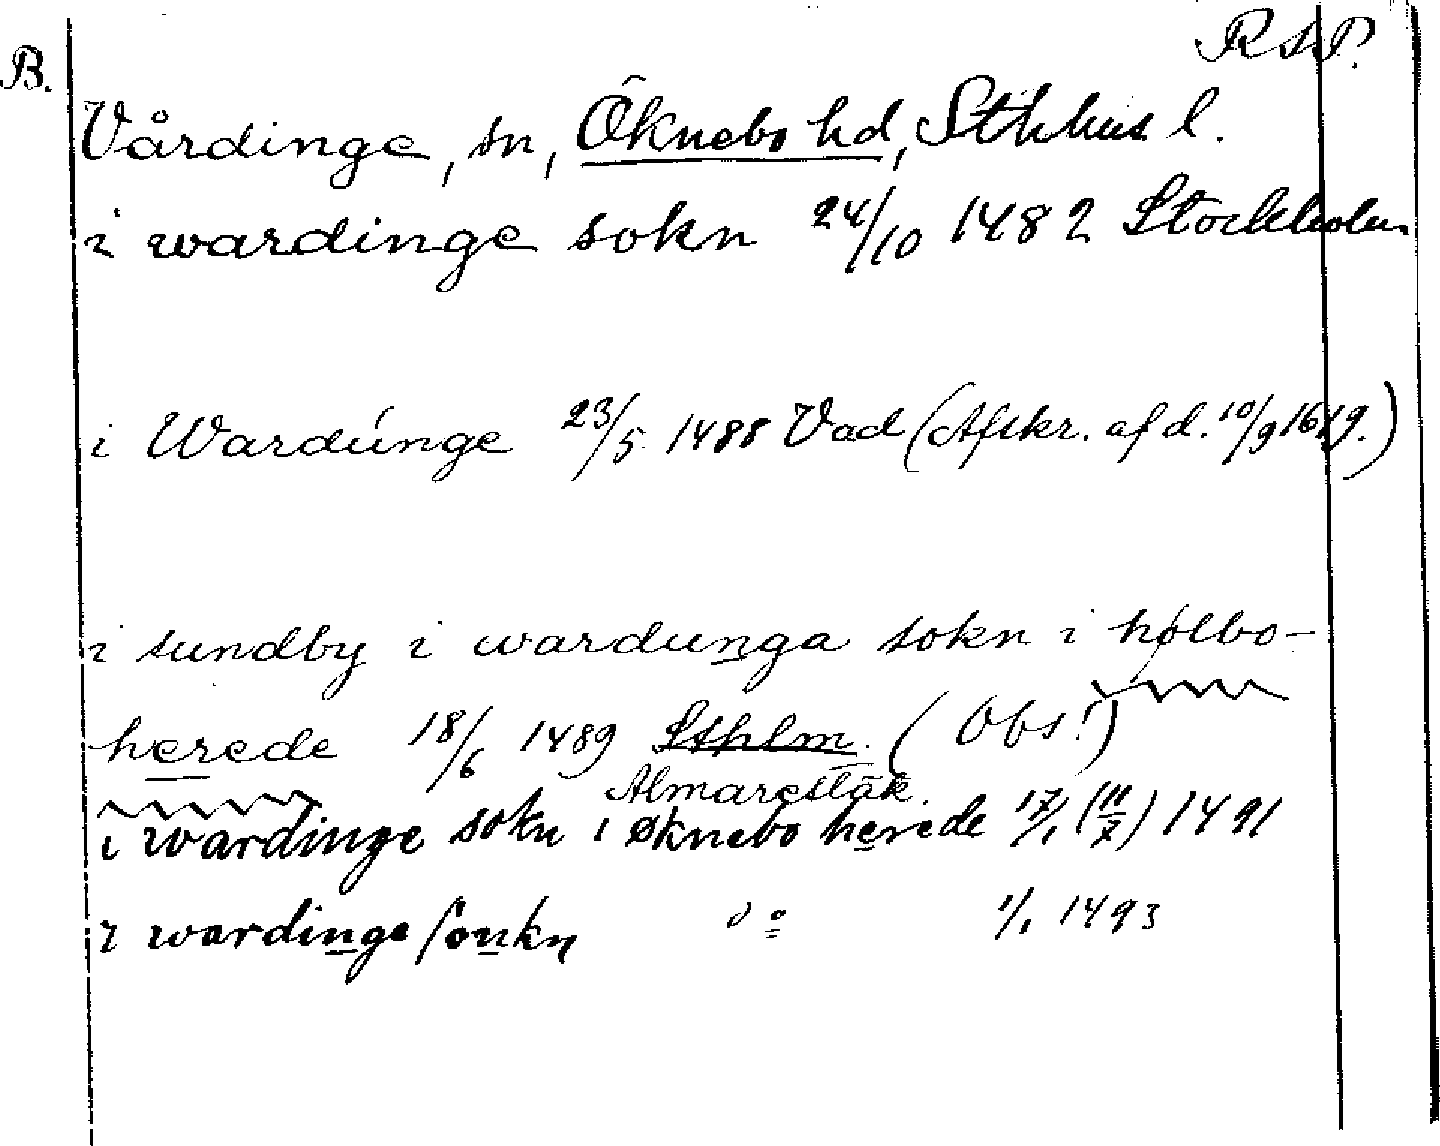 RAP.
B.
Vårdinge, sn, Öknebo hd, Sthlms l.
i wardinge sokn 24/10 1482 Stockholm
i Wardúnge 23/5 1488 Vad (Afskr. af d. 10/9 1619.)
i sundby i wardunga sokn i hølbo-
herede 18/6 1489 Sthlm. (Obs!)
Almarestäk.
i wardinge sokn i øknebo herede 17/1 (11/7) 1491
i wardinge sonkn do 1/1 1493